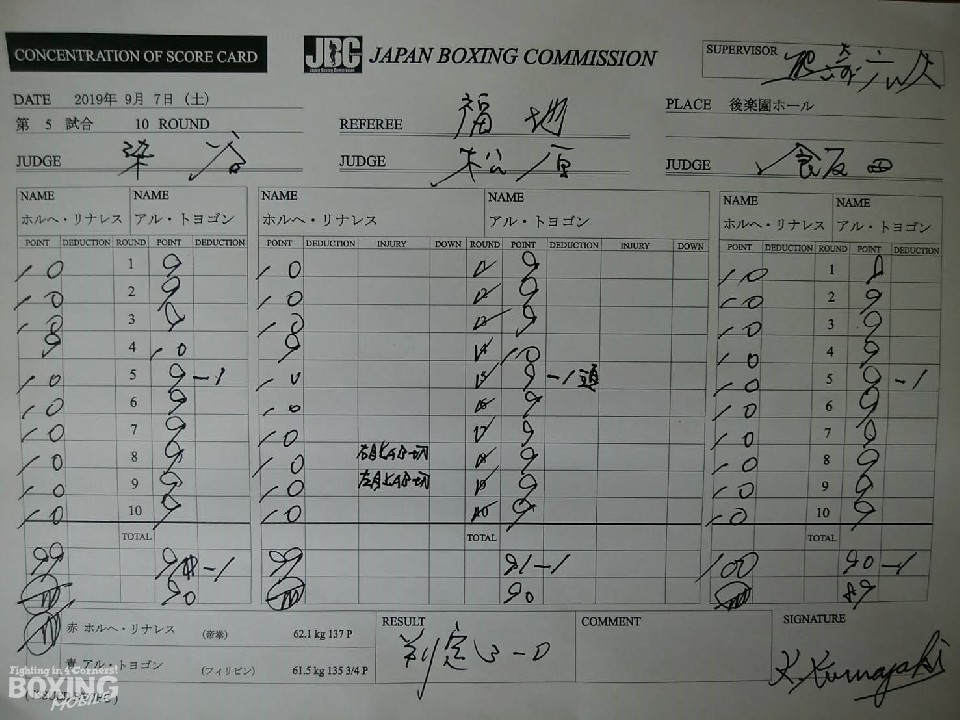 CONCENTRATION OF SCORE CARD
JBC JAPAN BOXING COMMISSION
SUPERVISOR
DATE 2019年 9月 7日 (土)
PLACE 後楽園ホール
第 5 試合 10 ROUND
REFEREE 福地
JUDGE 染谷
JUDGE 松原
JUDGE 飯田
NAME NAME NAME NAME NAME NAME
ホルヘ・リナレス アル・トヨゴン ホルヘ・リナレス アル・トヨゴン ホルヘ・リナレス アル・トヨゴン
POINT DEDUCTION ROUND POINT DEDUCTION POINT DEDUCTION INJURY DOWN ROUND POINT DEDUCTION INJURY DOWN POINT DEDUCTION ROUND POINT DEDUCTION
10 1 9 10 1 9 10 1 9
10 2 9 10 2 9 10 2 9
10 3 9 10 3 9 10 3 9
9 4 10 9 4 10 10 4 9
10 5 9 -1 10 5 9 -1 頭 10 5 9 -1
10 6 9 10 6 9 10 6 9
10 7 9 10 7 9 10 7 9
10 8 9 10 8 9 10 8 9
10 9 9 10 9 9 10 9 9
10 10 9 10 10 9 10 10 9
TOTAL TOTAL TOTAL
99 91 -1 99 91 -1 100 90 -1
90 90 89
赤 ホルヘ・リナレス (帝拳) 62.1 kg 137 P
青 アル・トヨゴン (フィリピン) 61.5 kg 135 3/4 P
RESULT
判定 3-0
COMMENT
SIGNATURE
K. Kumazaki
Fighting in 4 Corners!
BOXING
MOBILE